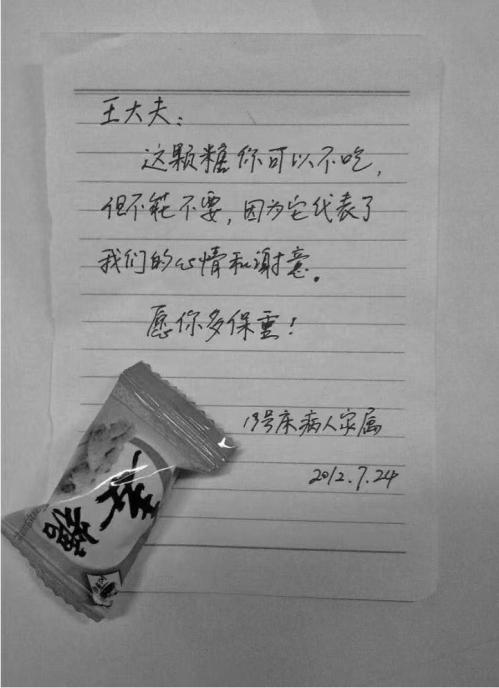 王大夫：
这颗糖你可以不吃，
但不能不要，因为它代表了
我们的心情和谢意。
愿你多保重！
号床病人家属
2012.7.24